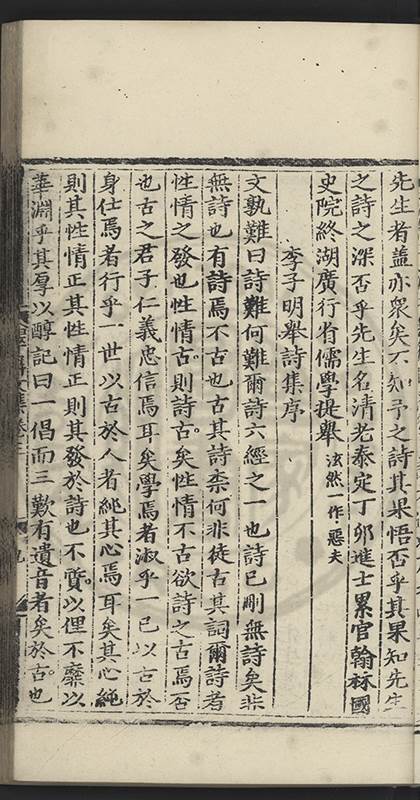 先生者蓋亦衆矣不知予之詩其果悟否乎其果知先生
之詩之深否乎先生名清老泰定丁卯進士累官翰林國
史院終湖廣行省儒學提舉 泫然一作惡夫
李子明舉詩集序
文孰難曰詩難何難爾詩六經之一也詩已刪無詩矣非
無詩也有詩焉不古也古其詩柰何非徒古其詞爾詩者
性情之發也性情古則詩古矣性情不古欲詩之古焉否
也古之君子仁義忠信焉耳矣學焉者淑乎一已以古於
身仕焉者行乎一世以古於人者純其心焉耳矣其心純
則其性情正其性情正則其發於詩也不質以俚不靡以
華淵乎其厚以醇記曰一倡而三歎有遺音者矣於古也